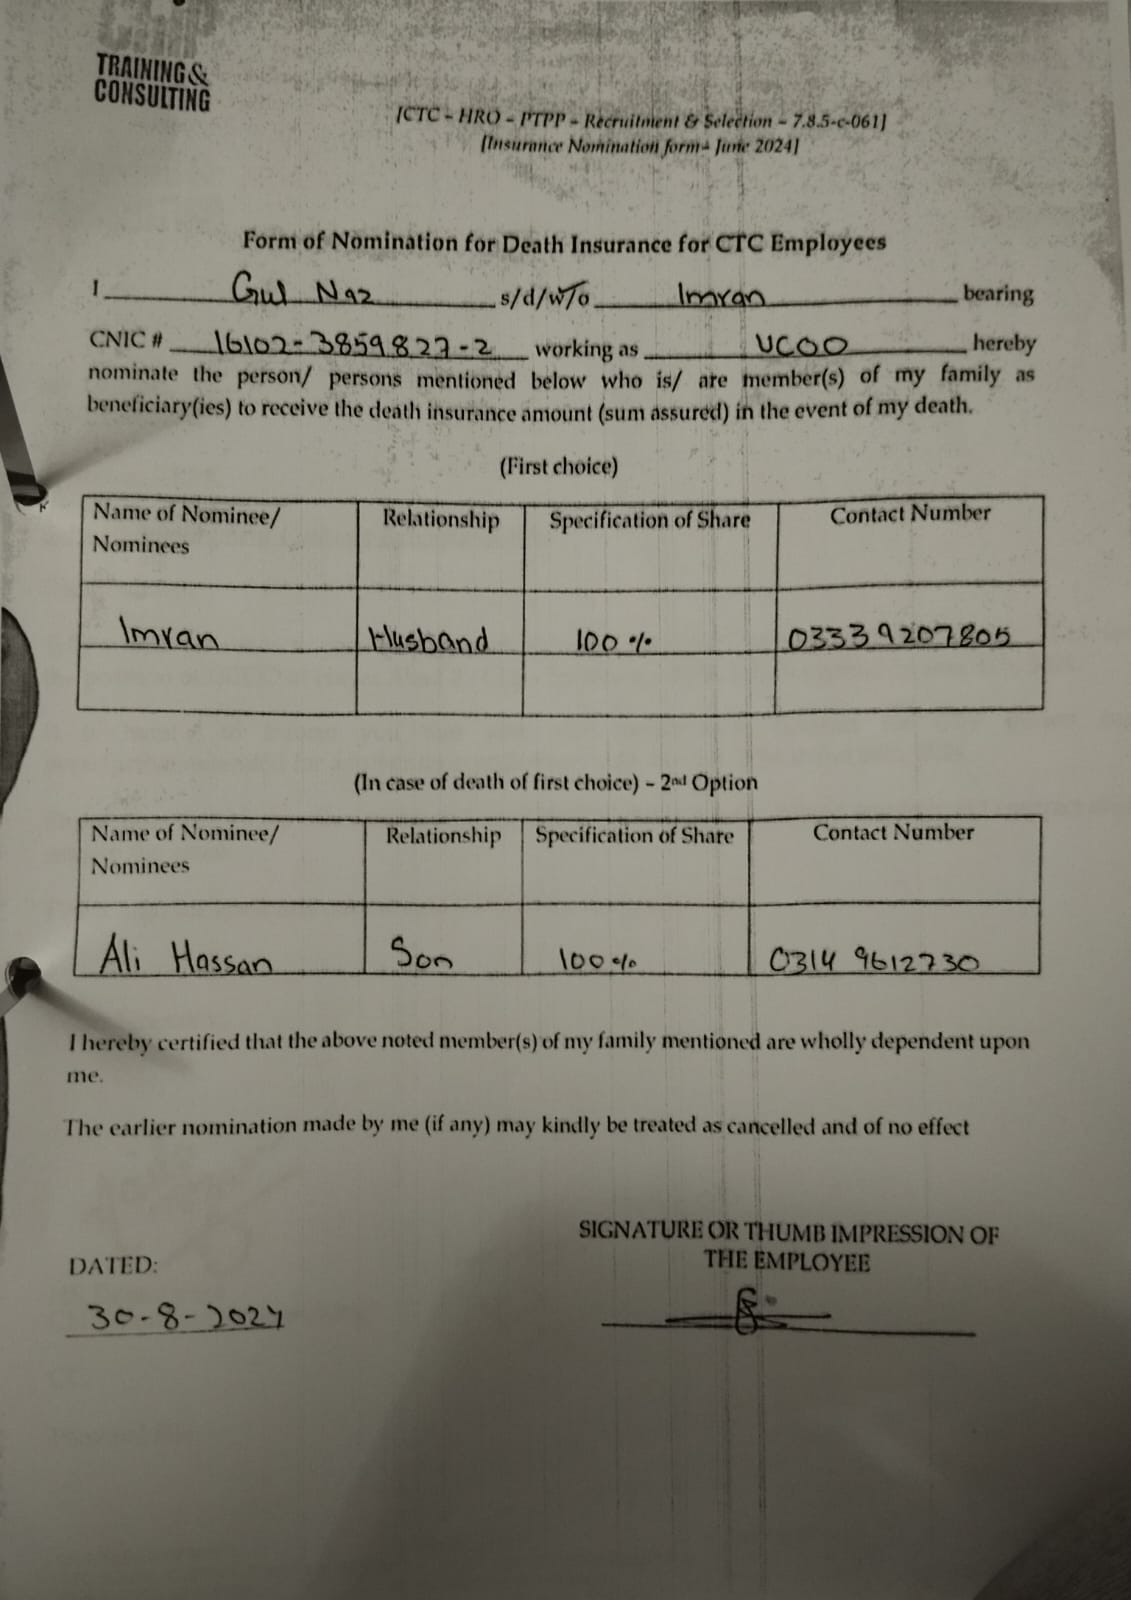 TRAINING &
CONSULTING
[CTC - HRO - PTPP - Recruitment & Selection - 7.8.5-c-061]
[Insurance Nomination form- June 2024]
Form of Nomination for Death Insurance for CTC Employees
I Gul Naz s/d/w/o Imran bearing
CNIC # 16102-3859827-2 working as UCOO hereby
nominate the person/ persons mentioned below who is/ are member(s) of my family as
beneficiary(ies) to receive the death insurance amount (sum assured) in the event of my death.
(First choice)
Name of Nominee/ Relationship Specification of Share Contact Number
Nominees
Imran Husband 100 % 03339207805
(In case of death of first choice) - 2nd Option
Name of Nominee/ Relationship Specification of Share Contact Number
Nominees
Ali Hassan Son 100 % 0314 9612730
I hereby certified that the above noted member(s) of my family mentioned are wholly dependent upon
me.
The earlier nomination made by me (if any) may kindly be treated as cancelled and of no effect
SIGNATURE OR THUMB IMPRESSION OF
THE EMPLOYEE
DATED:
30-8-2024